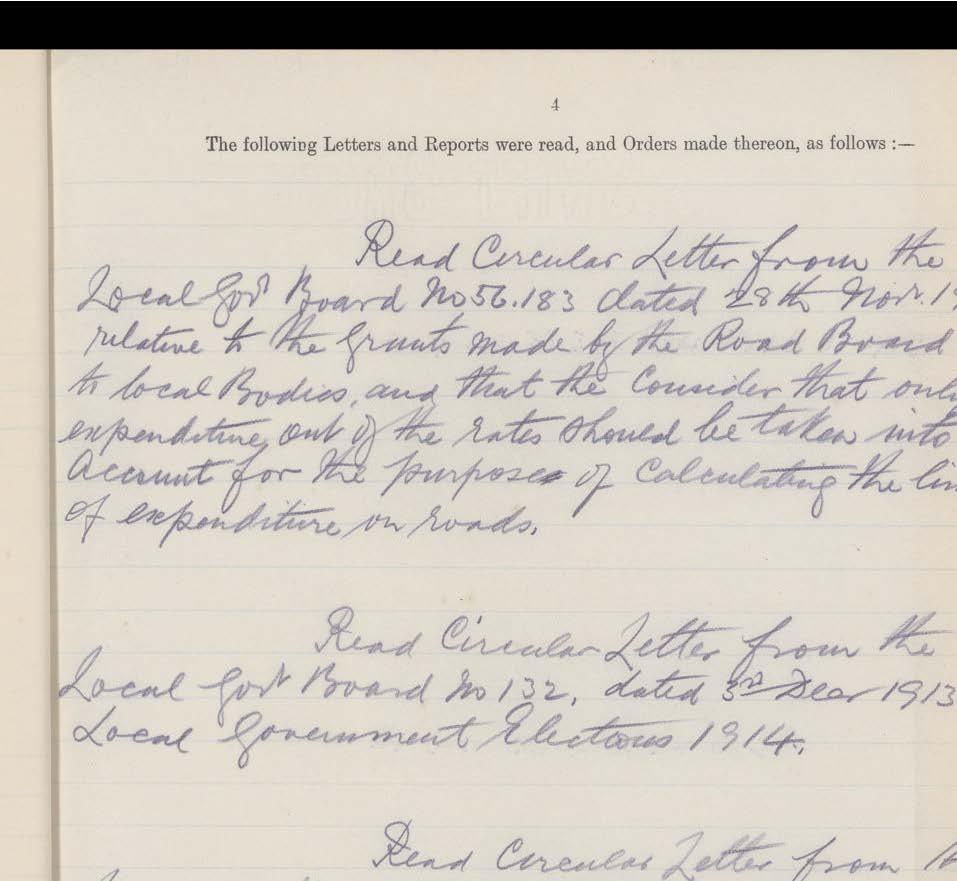 4
The following Letters and Reports were read, and Orders made thereon, as follows :—
Read Circular Letter from the
Local Govt Board No 56.183 dated 28th Novr. 19
relative to the Grants made by the Road Board
to local Bodies, and that the Consider that only
expenditure out of the rates should be taken into
Account for the purposes of Calculating the
of expenditure on roads.
Read Circular Letter from the
Local Govt Board No 132, dated 3rd Decr 1913
Local Government Elections 1914.
Read Circular Letter from